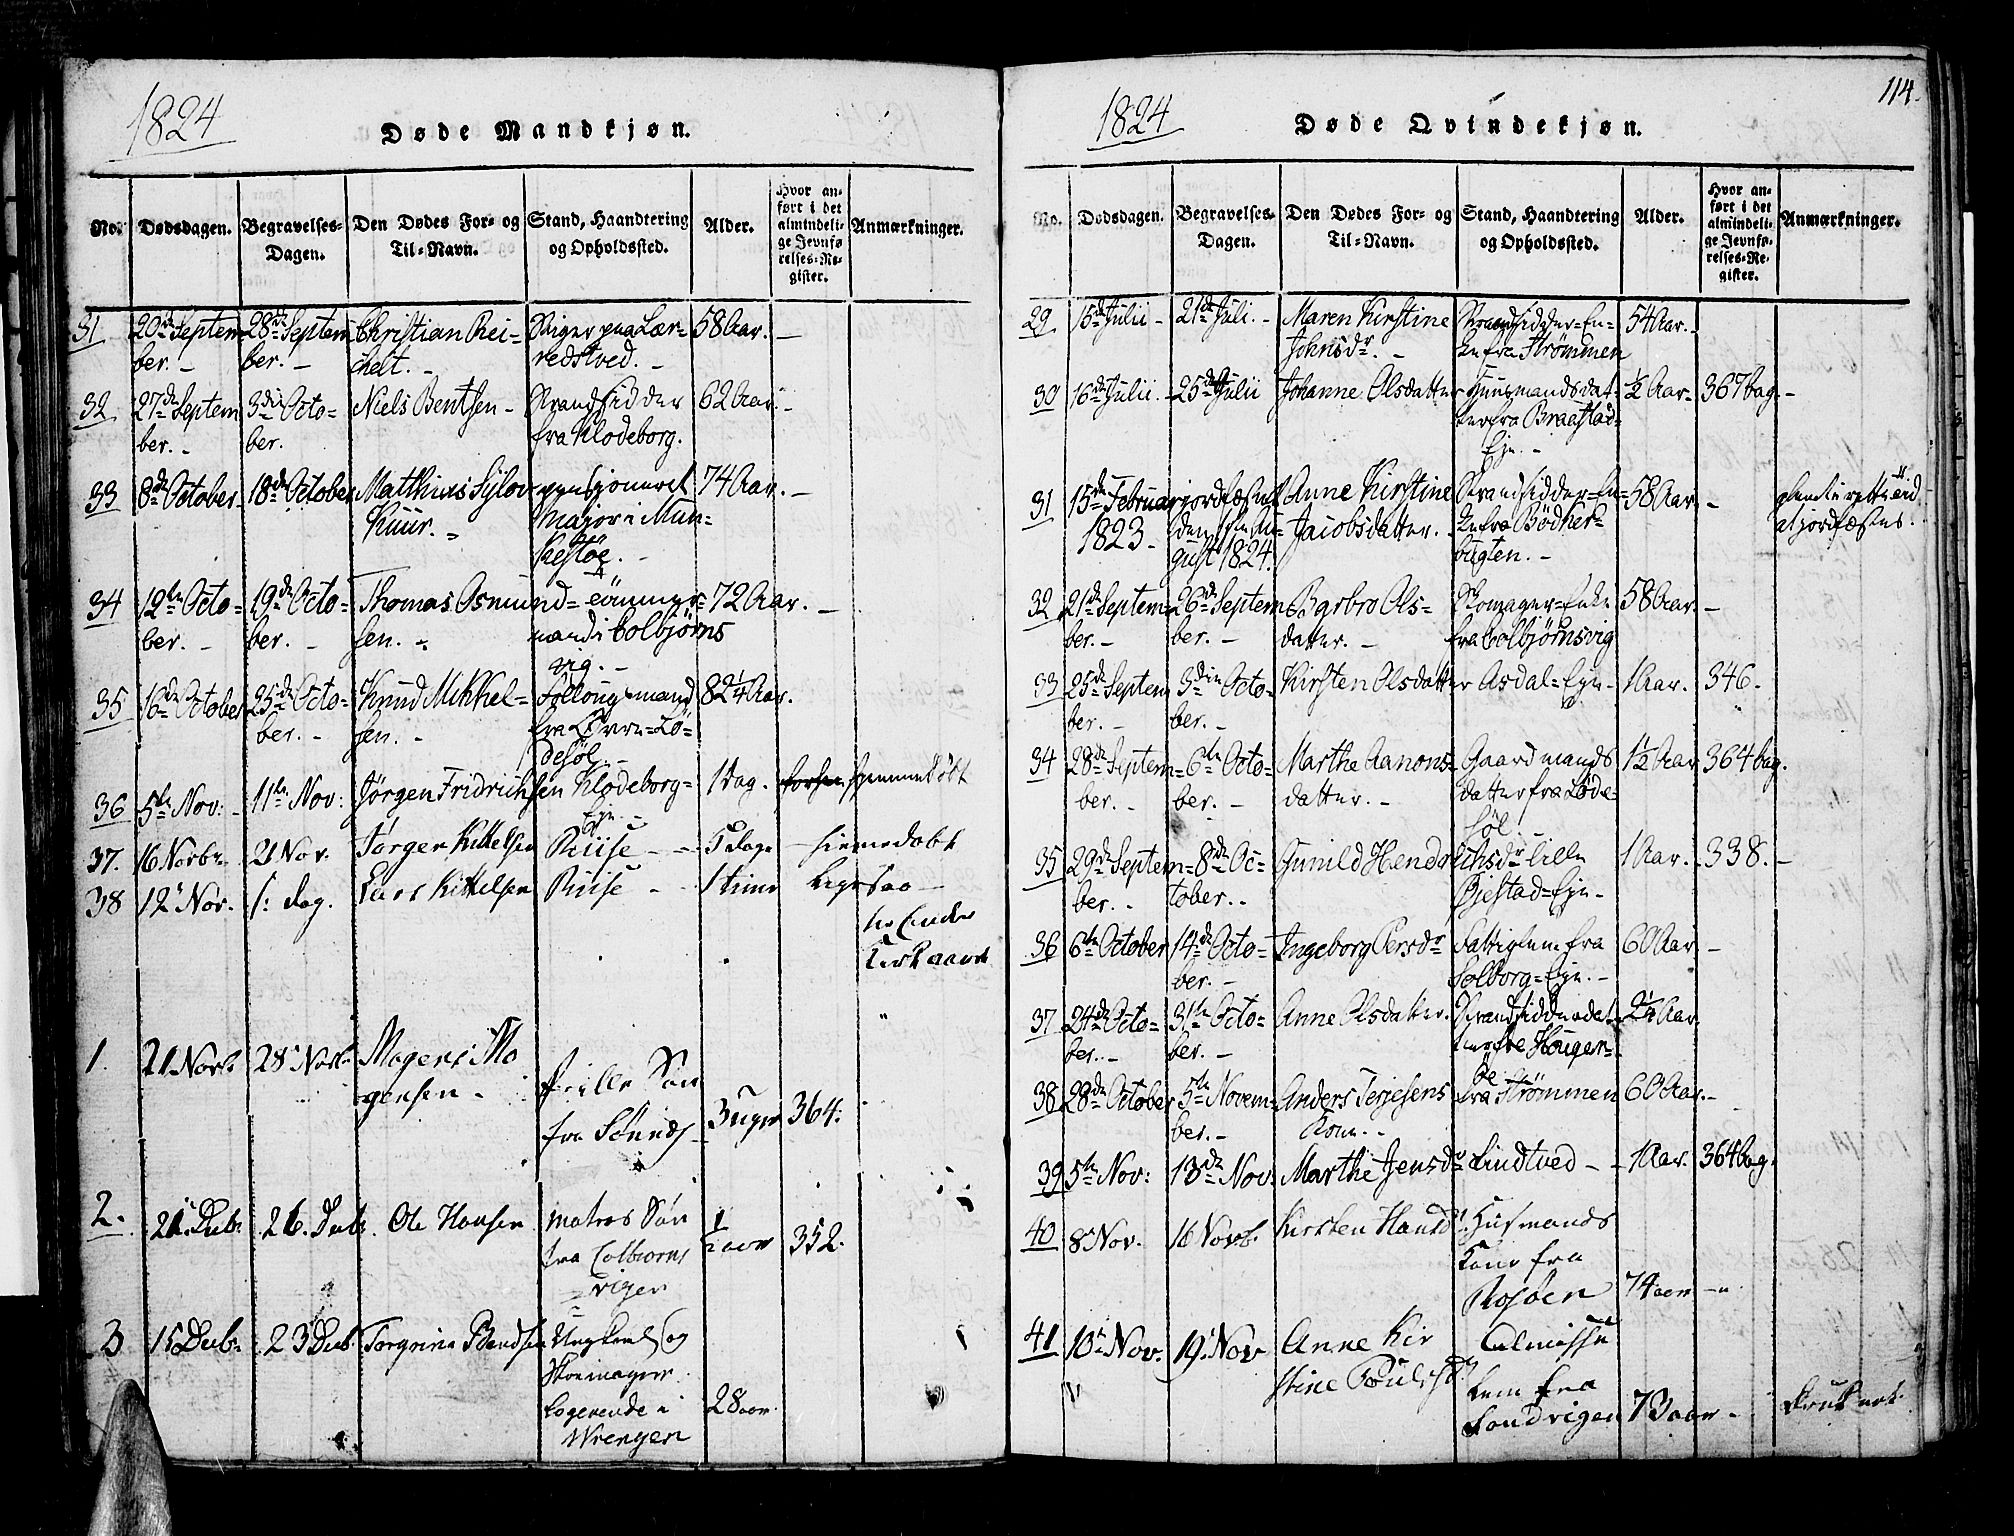 1824
Døde Mandkjøn.
No. Dødsdagen. Begravelses-Dagen. Den Dødes For- og Til-Navn. Stand, Haandtering og Opholdssted. Alder. Hvor anført i det almindelige Jevnførelses-Register. Anmærkninger.
31 20de September. - 28de September. - Christian Reichelt. - 58 Aar. -
32 27de September. - 3die October. Niels Bentsen - Strandsidder fra Klodeborg. 62 Aar. -
33 8de October 18de October Matthias Sylow Kuur. - pensioneret Major i Munkestøe. - 74 Aar. -
34 12te October. - 19de October. - Thomas Osmundsen. - Tömmermand i Colbjørnsvig. - 72 Aar. -
35 16de October 25de October. - Knud Mikkelsen. - Follougsmand fra Løddesøl. - 82¼ Aar.
36 5te Nov: - 11te Nov: Jørgen Fridrichsen Klodeborg-Eje. - 1 Dag. hjemmedöbt
37. 16 Novbr 21 Nov. Jørgen Kittelsen Riise - 5 dage - hiemedøbt
38 12 Nov. s: dag. Lars Kittelsen Riise - 1 time ligesaa
Kirkegaard
1. 21 Novb. 28 Novb. Mogens Mogensen - Søn fra 3 uger 364.
2. 21. Decb. 26. Decb. Ole Hansen matros Søn fra Colbiørnsvigen ½ aar 352.
3 15 Decb. 23 Decb. Torgrim Ungkarl og Skoemager Logerende i Wrengen 28 aar.
114.
1824
Døde Qvindekjøn.
No. Dødsdagen. Begravelses-Dagen. Den Dødes For- og Til-Navn. Stand, Haandtering og Opholdssted. Alder. Hvor anført i det almindelige Jevnførelses-Register. Anmærkninger.
29 15de Julii - 21de Juli. - Maren Kirstine Johnsdr. - Strandsidder-Enke fra Strømmen 54 Aar. -
30 16de Julii. - 25de Julii Johanne Olsdatter Huusmandsdatter fra Braastad-Eje. - ½ Aar - 367 bag. -
31 15de Februar 1823. - jordfæstet den August 1824. Anne Kirstine Jacobsdatter. - Strandsidder-Enke fra Bødkerbugten. - 58 Aar. - glemt i rette tid at jordfæstes.
32 21de September. - 26de September. - Barbro Olsdatter. - Skomager-Enke fra Colbjørnsvig 58 Aar. -
33 25de September. - 3die October. - Kirsten Olsdatter Asdal-Eje - 1 Aar. 346.
34 28de September. - 6te October. - Marthe Aanonsdatter. - Gaardmandsdatter fra Lødesøl. 1½ Aar 364 bag.
35 29de September. - 8de October. - Gunild Hendrichsdr. Lille Bjestad-Eje - 1 Aar. - 338. -
36 6te October 14de October. - Ingeborg Persdr Fattiglem fra Solborg-Eje. - 60 Aar -
37 24de October. - 31te October. - Anne Olsdatter. Strandsidderdatter fra Hougen- 2¼ Aar.
38 28de October 5te November. - Anders Terjesens Kone. - fra Strømmen 60 Aar. -
39 5te Nov: 13de Nov: Marthe Jensdr Lindtved - 1 Aar. 364 bag.
40 8 Nov. 16 Novb. Kirsten Hansd. Huusmands Kone fra Rosøen 74 aar -
41 10 Nov. 19. Nov Anne Kirstine Poulsd. Almisse Lem fra Sandvigen 73 aar -